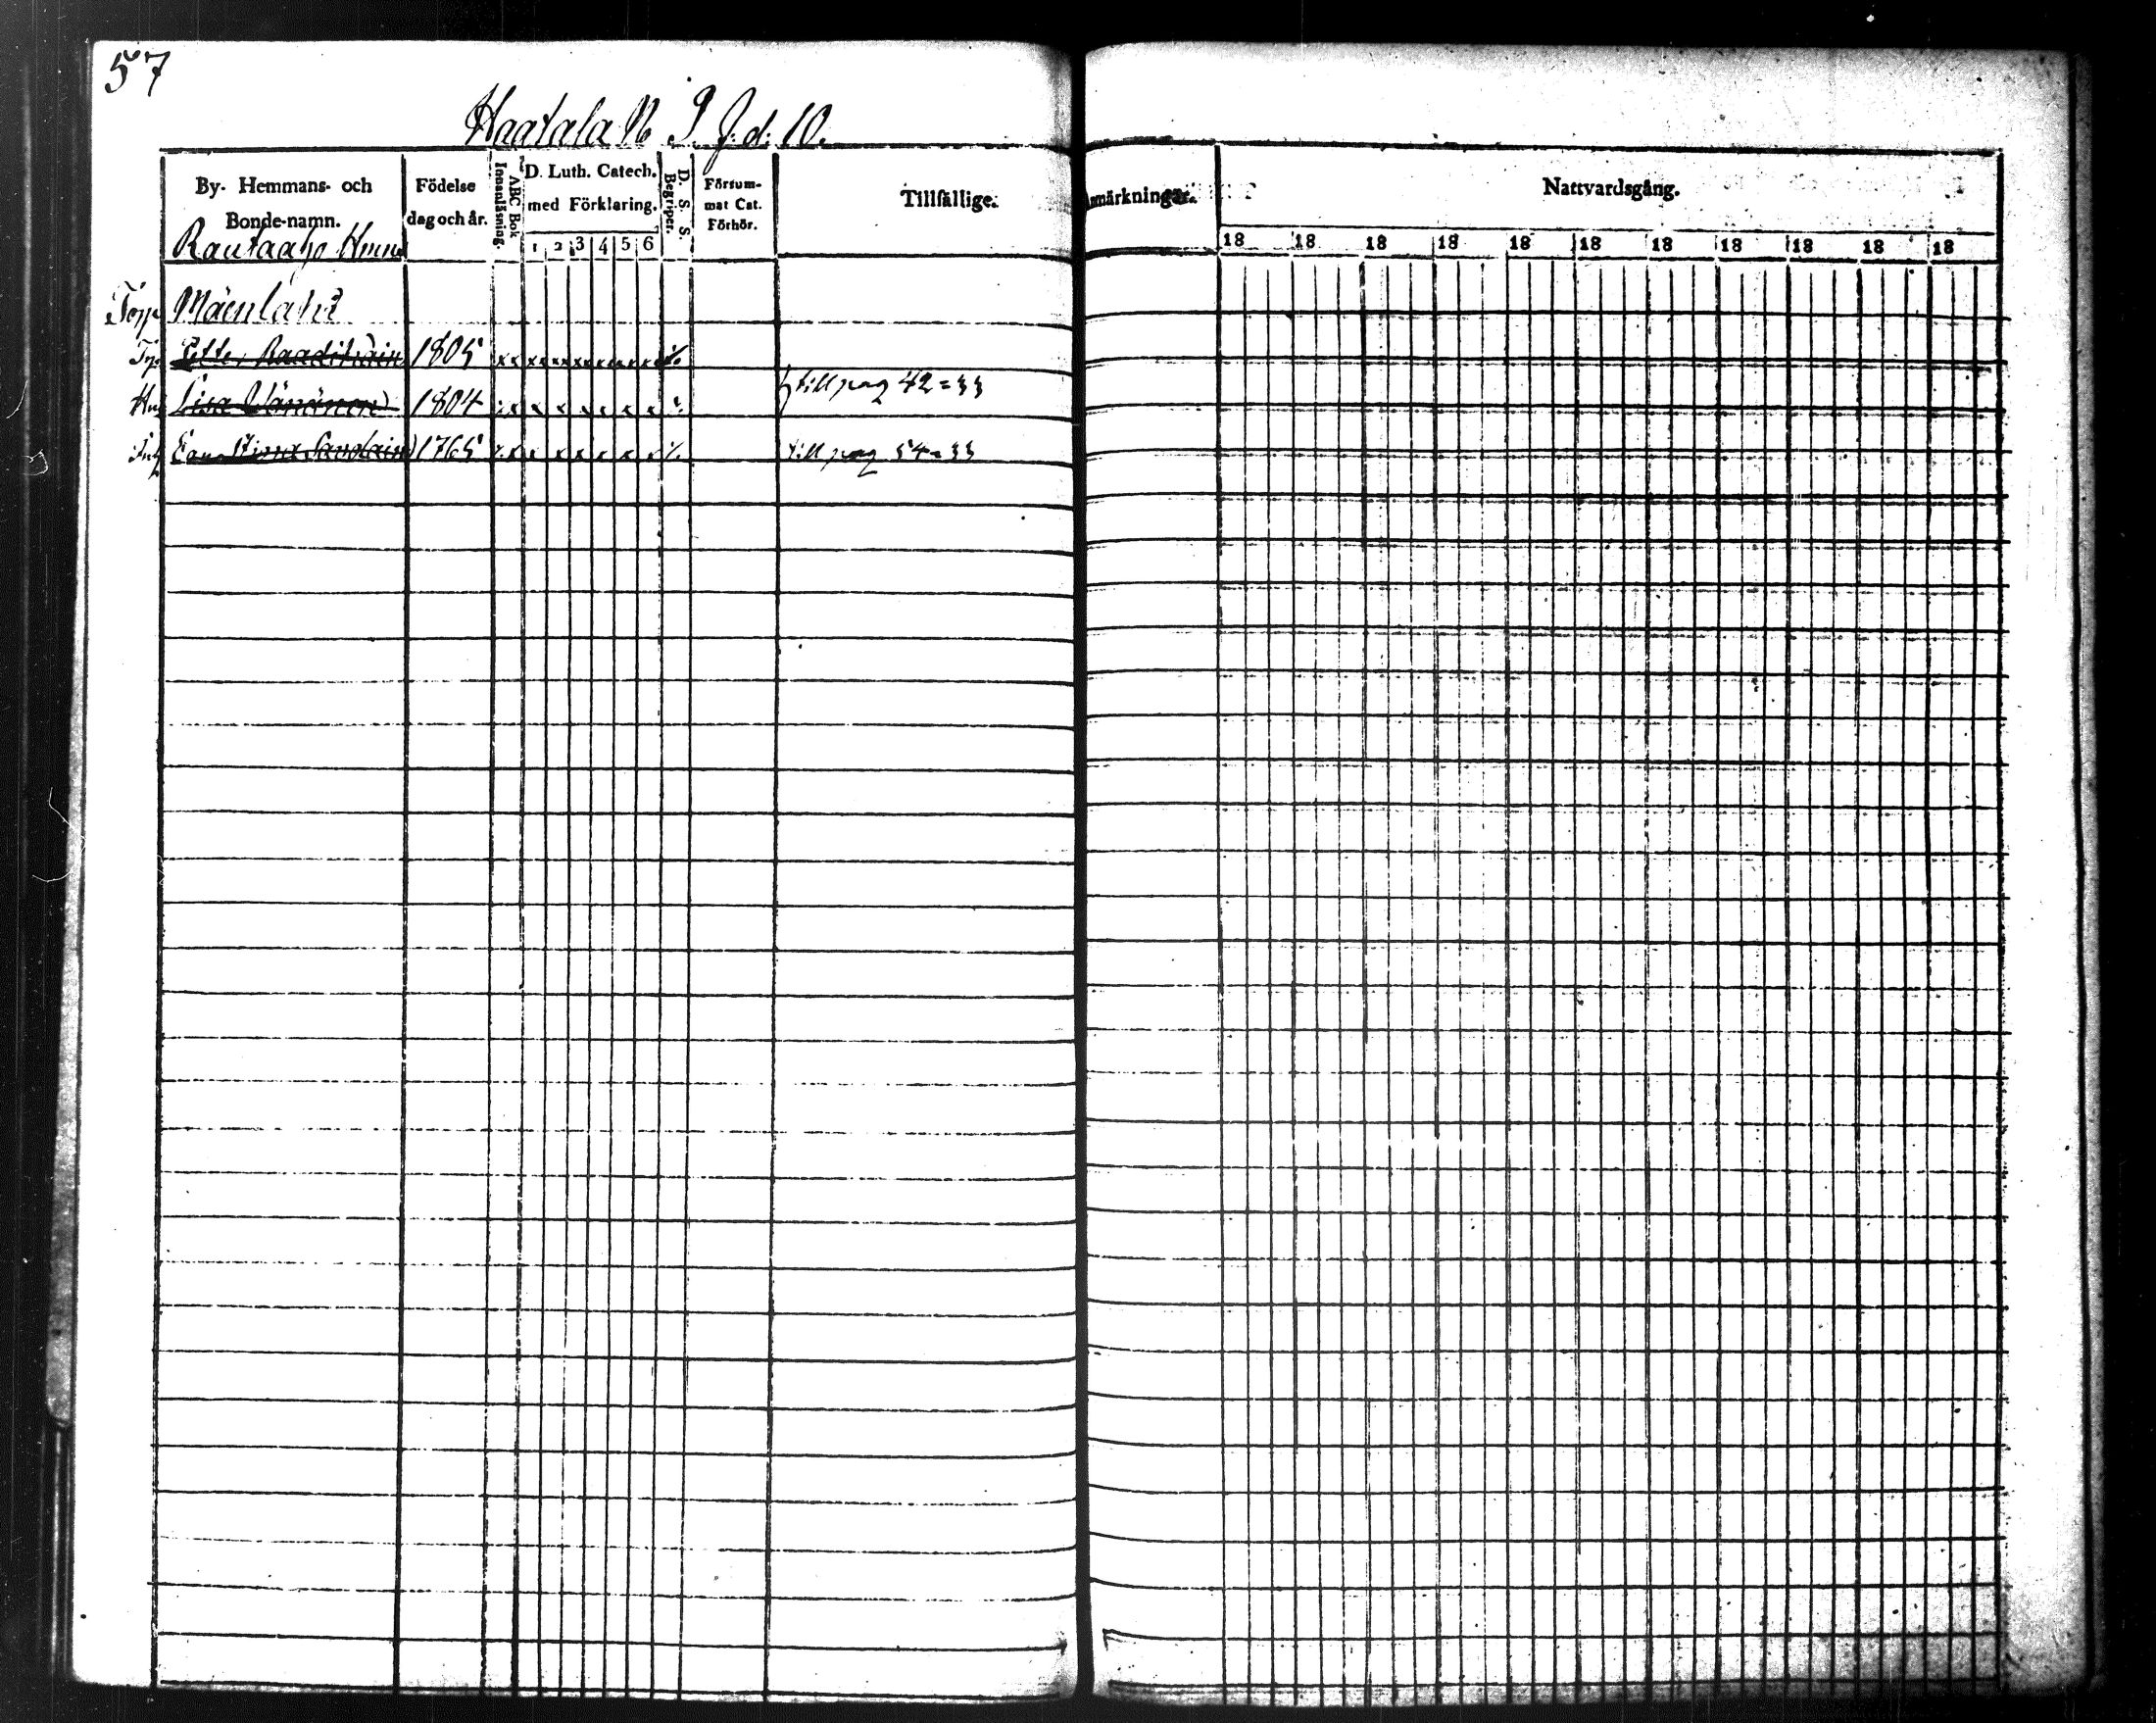 57
Haatala N 9 J:d: 10.
By- Hemmans- och Bonde-namn.
Födelse dag och år.
ABC Bok Innanläsning.
D. Luth. Catech. med Förklaring.
1 2 3 4 5 6
D. S. S. Begriper.
Försummat Cat. Förhör.
Tillfällige Anmärkningar.
Nattvardsgång.
18 18 18 18 18 18 18 18 18 18 18
Rautaaho Hmn
Torp Mäenlahti
Petter 1805
Hu Lisa Vänänen 1804 till pag 42=33
Stina Savolain 1765 till pag 54=33